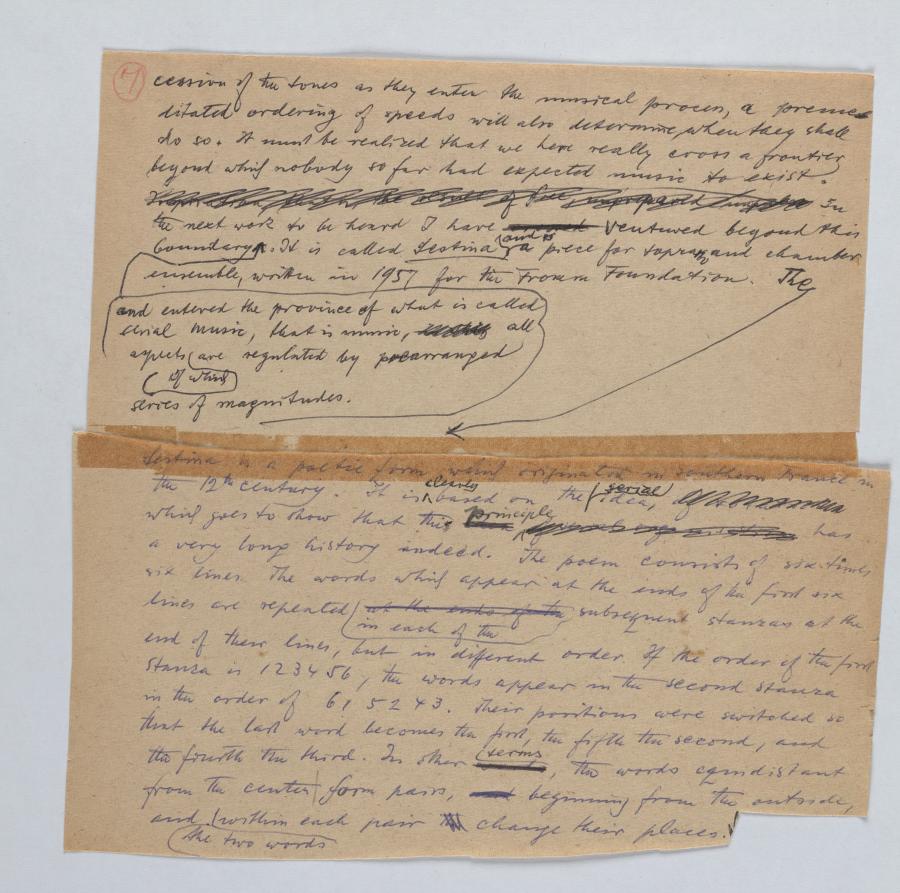 7
ccesion of the tones as they enter the musical process, a preme
ditated ordering of speeds will also determine when they shall
do so. It must be realized that we here really cross a frontier
beyond which nobody so far had expected music to exist.
In
the next work to be heard I have ventured beyond this
boundary. It is called Sestina and is a piece for soprano and chamber
ensemble, written in 1957 for the Fromm Foundation. The
and entered the province of what is called
serial music, that is music, all
aspects are regulated by prearranged
of which
series of magnitudes.
Sestina is a poetic form which originated in southern France in
the 12th century. It is clearly based on the serial idea,
which goes to show that this principle has
a very long history indeed. The poem consists of six times
six lines. The words which appear at the ends of the first six
lines are repeated at the ends of the subsequent stanzas at the
in each of the
end of their lines, but in different order. If the order of the first
stanza is 123456, the words appear in the second stanza
in the order of 615243. Their positions were switched so
that the last word becomes the first, the fifth the second, and
the fourth the third. In other terms, the words equidistant
from the center form pairs, and beginning from the outside,
and within each pair change their places.
the two words